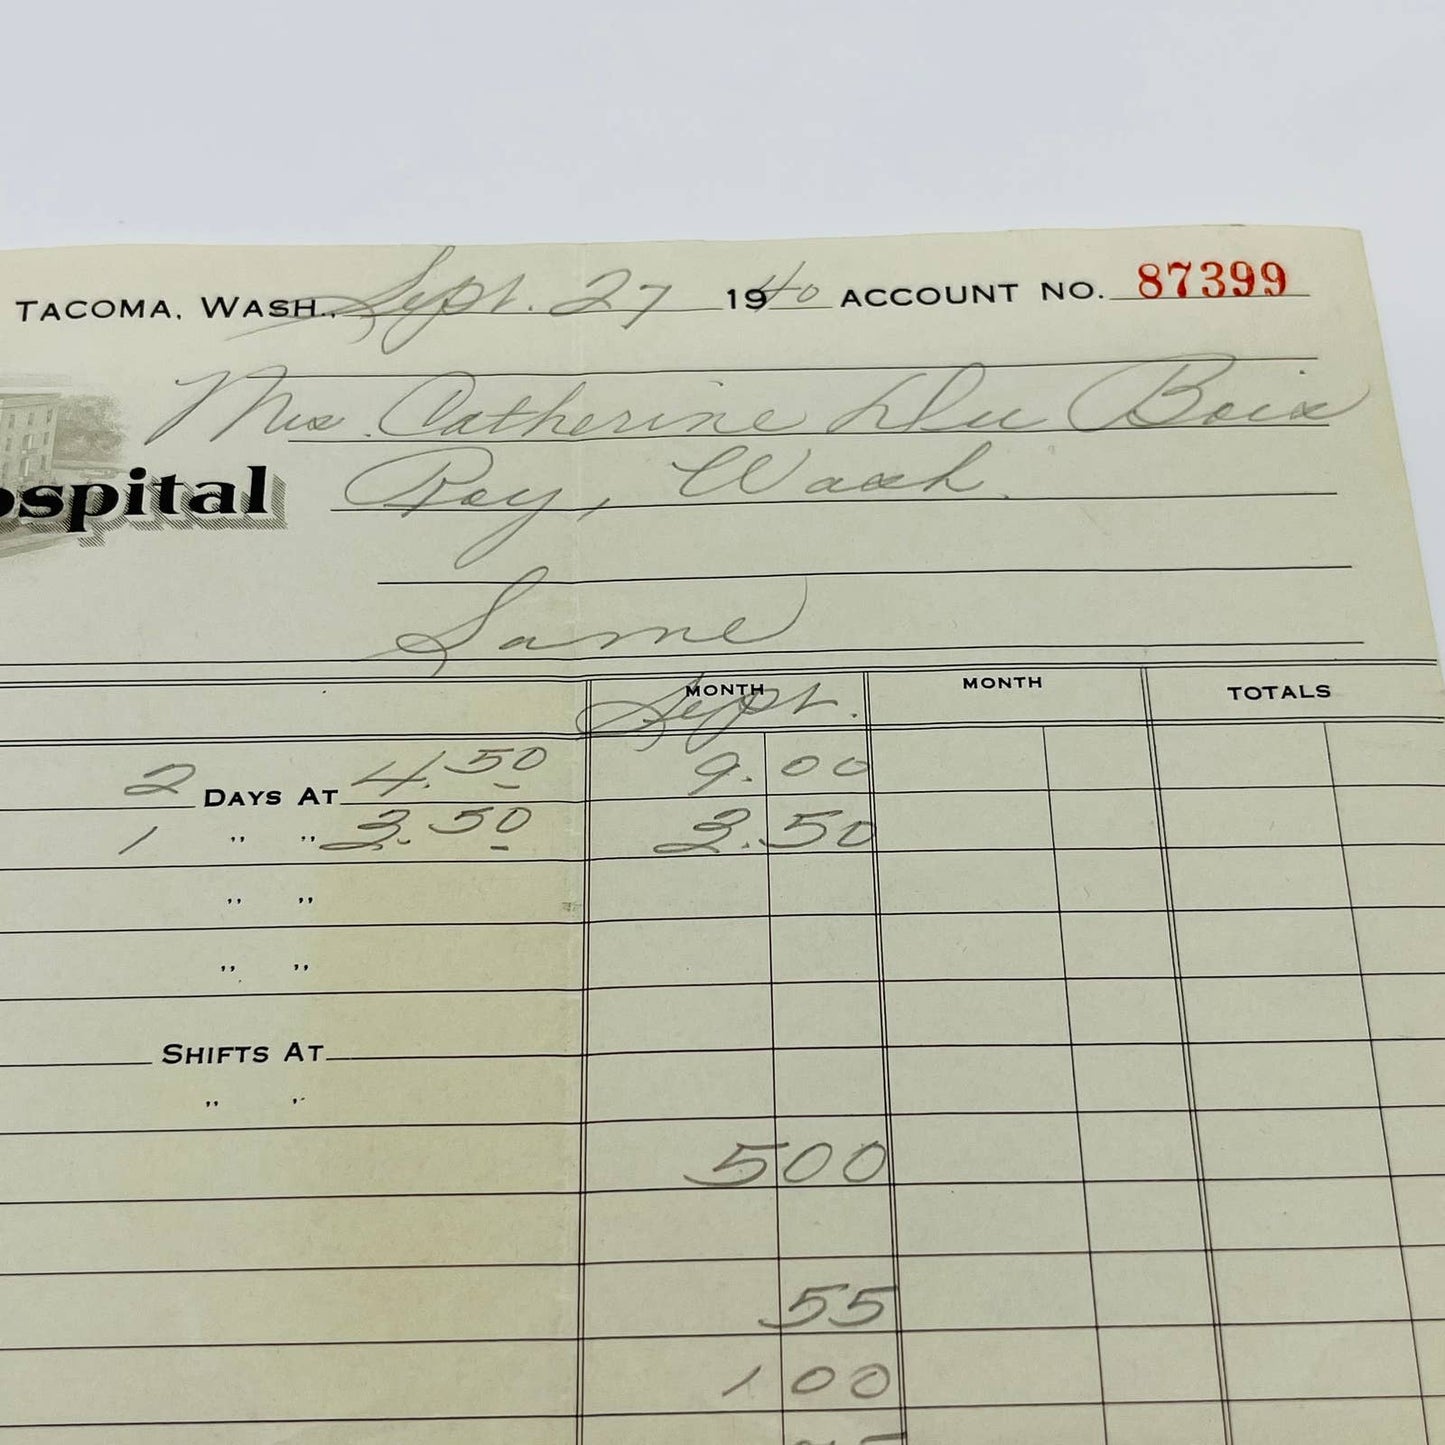 TACOMA, WASH., Sept. 27 1940 ACCOUNT NO. 87399
Mrs. Catherine Du Boix
ospital Roy, Wash.
Same
MONTH MONTH TOTALS
Sept.
2 DAYS AT 4.50 9.00
1 " " 3.50 3.50
" "
" "
SHIFTS AT
" "
5 00
55
1 00